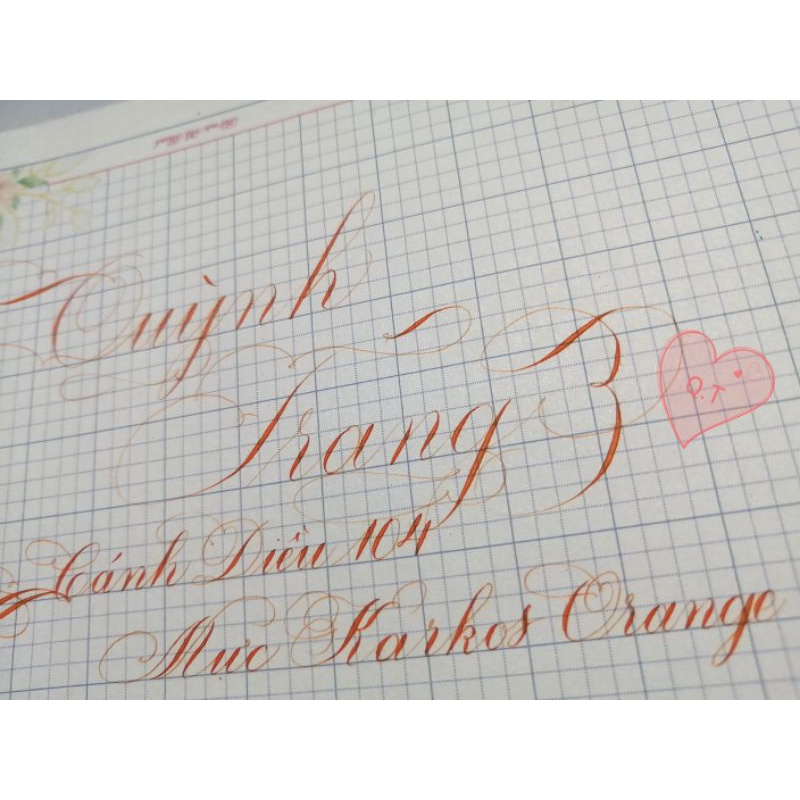 Quỳnh
Trang 3
Q.T
Cánh Diều 104
Mực Karkos Orange